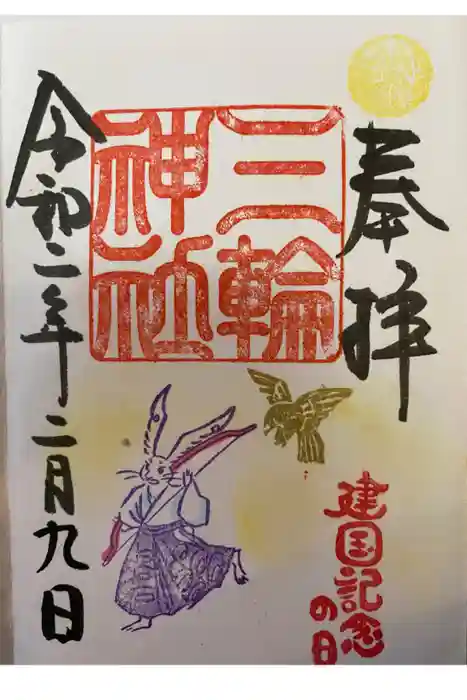 奉拝
三輪
神社
建国記念
の日
令和二年二月九日